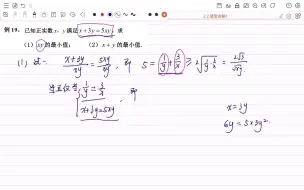 例 19、已知正实数 x, y 满足 x+3y=5xy, 求
(1) xy 的最小值; (2) x+y 的最小值.
(1) 法一 \frac{x+3y}{xy} = \frac{5xy}{xy}, 即 5 = \frac{1}{y}+\frac{3}{x} ≥ 2\sqrt{\frac{1}{y}\cdot\frac{3}{x}} = \frac{2\sqrt{3}}{\sqrt{xy}}.
当且仅当 \frac{1}{y}=\frac{3}{x}, 即
x+3y=5xy
x=3y
6y=5×3y².